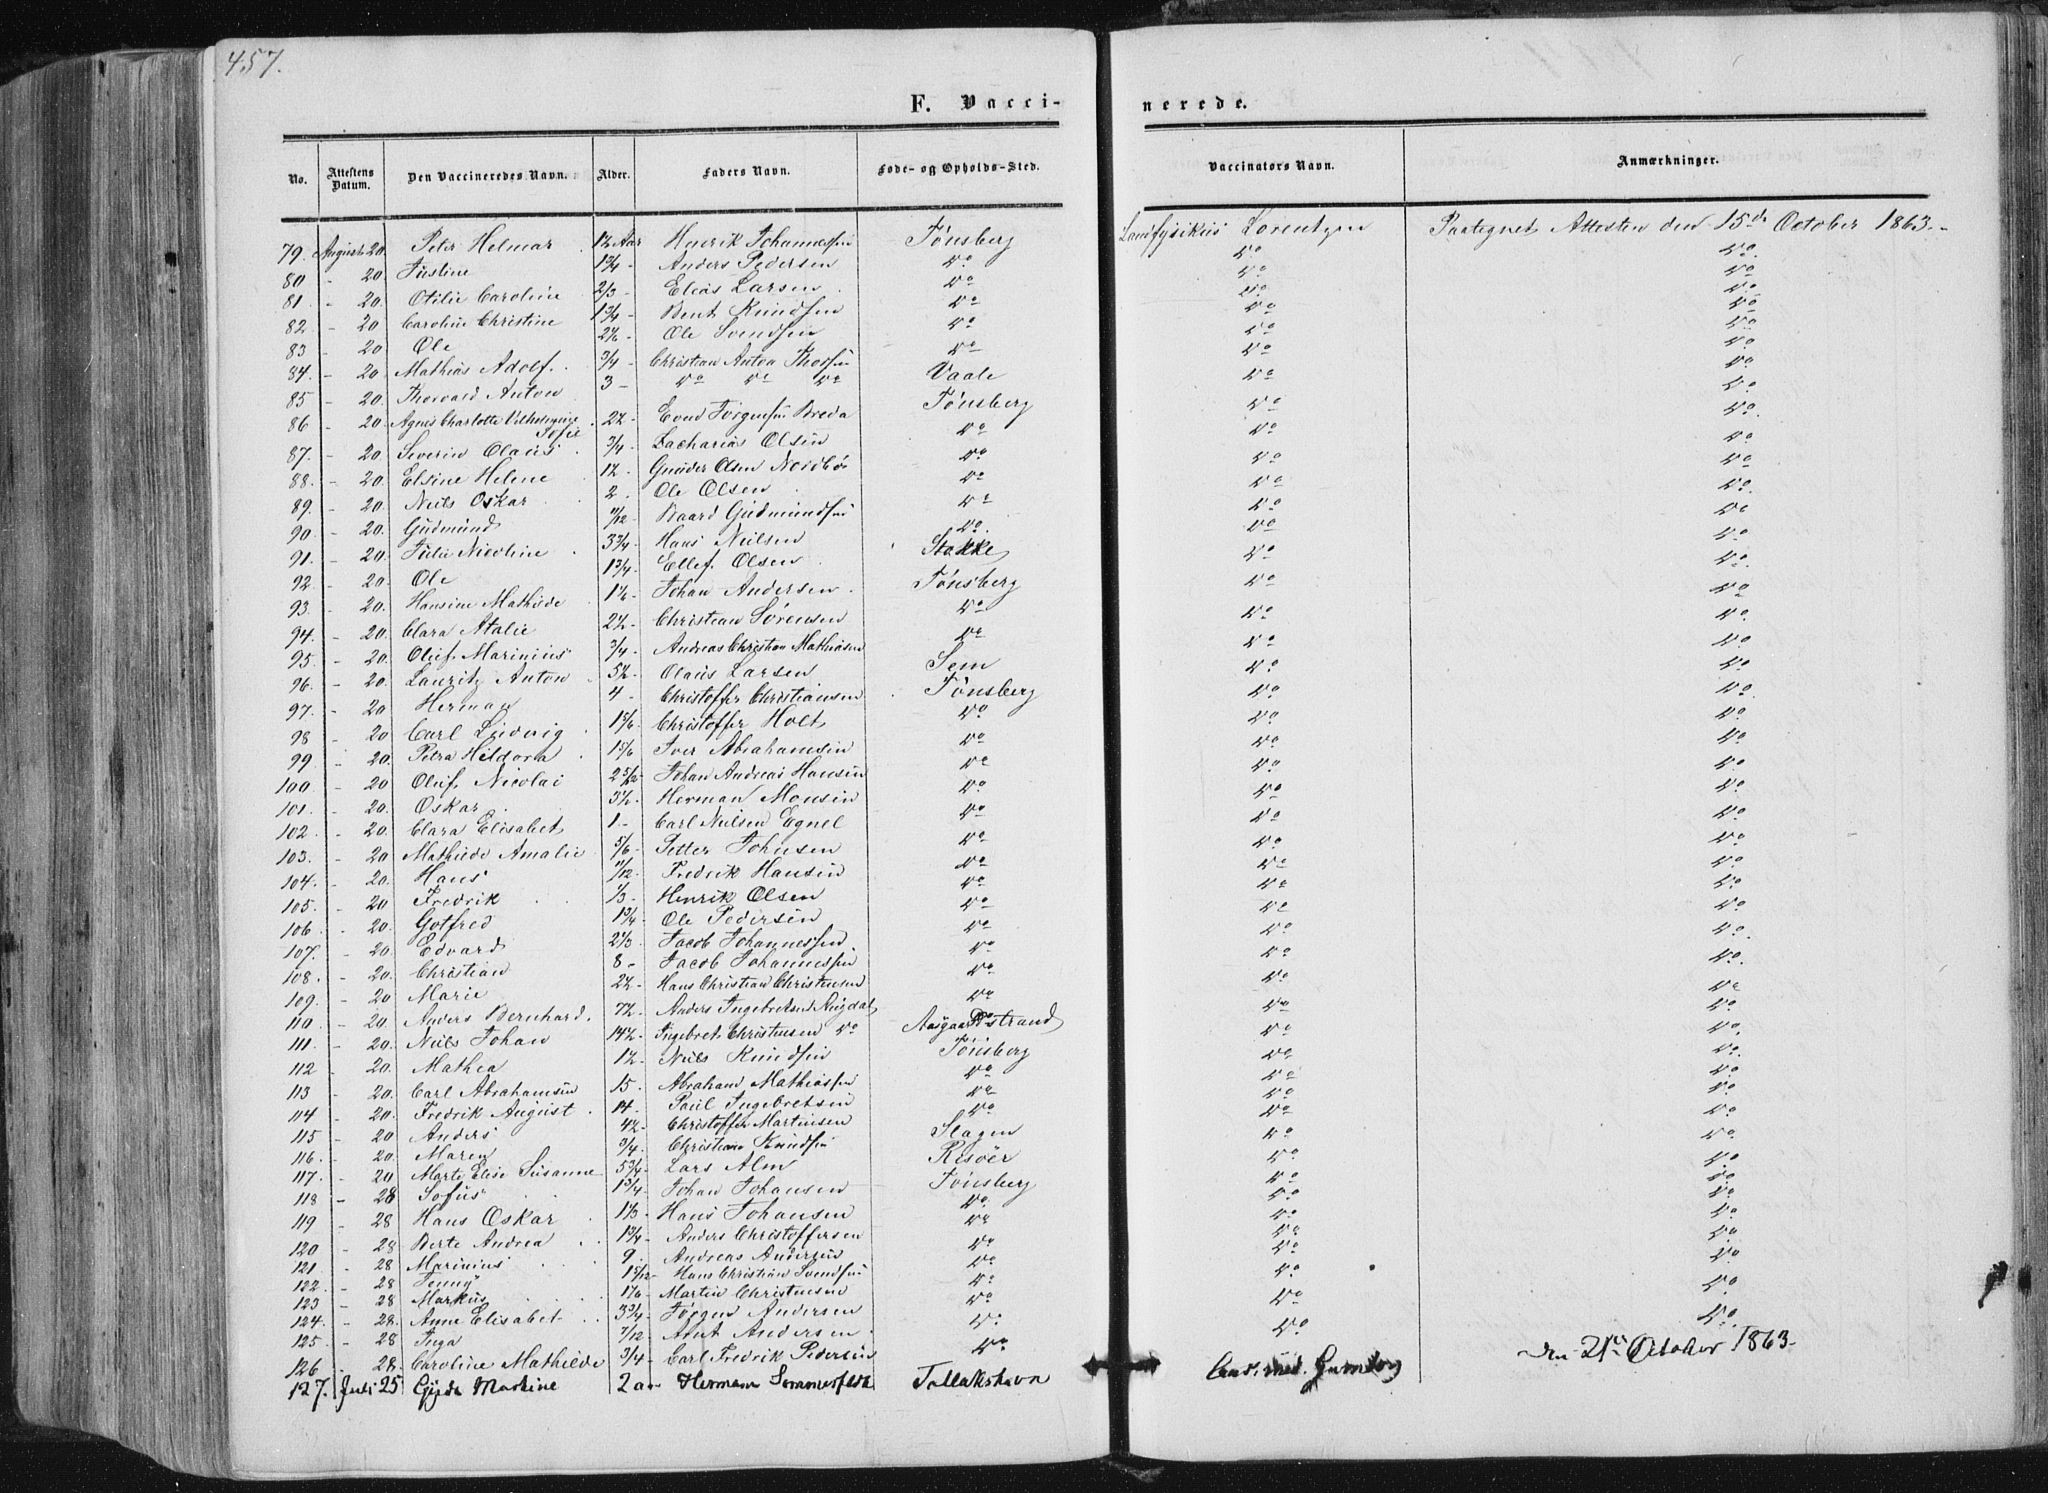 457.
F. Vacci-
nerede.
No. Attestens Datum. Den Vaccineredes Navn. Alder. Faders Navn. Føde- og Opholds-Sted. Vaccinators Navn. Anmærkninger.
79. August 20. Peter Helmar 1½ Aar Henrik Johannessen Tønsberg Landfysikus Lorentzen Paategnet Attesten den 15de October 1863.
80 - 20 Justine 1¾ - Anders Pedersen do do do
81. - 20. Otilie Caroline 2/3 - Elias Larsen do do do
82 - 20 Caroline Christine 1¾ - Bent Knudsen do do do
83 - 20 Ole Ole Svendsen do do do
84. - 20. Mathias Adolf. ¾ - Christian Anton Thorsen do do do
85 - 20. Thorvald Anton 3 - do do do Vaale do do
86 - 20 Agnes Charlotte Vilhelmine Sofie 2½ - Evend Jørgensen Breda Tønsberg do do
87. - 20. Severin Olaus ¾ - Zacharias Olsen do do do
88. - 20. Elsine Helene 1½ - Gunder Olsen Nordbøe do do do
89. - 20. Niels Oskar 2. Ole Olsen do do do
90 - 20. Gudmund 11/12 - Baard Gudmundsen do do do
91. - 20. Julie Nicoline 3¾ - Hans Nielsen do do do
92. - 20. Ole 1¾ - Ellef Olsen Stokke do do
93. - 20. Hansine Mathilde Johan Andersen Tønsberg do do
94. - 20. Clara Atalie 2½ - Christian Sørensen do do do
95. - 20. Oluf Marinius ¾ - Andreas Christian Mathiasen do do do
96. - 20. Lauritz Anton 5½ - Olaus Larsen Sem do do
97. - 20 Herman 4 - Christoffer Christiansen Tønsberg do do
98 - 20 Carl Ludvig 1 5/6 - Christoffer Holt do do do
99 - 20. Petra Hildora 1 5/6 - Iver Abrahamsen do do do
100. - 20 Oluf Nicolai 2 5/12 - Johan Andreas Hansen do do do
101. - 20. Oskar 3½ - Herman Monsen do do do
102. - 20. Clara Elisabet 1 - Carl Nielsen Egnel do do do
103. - 20 Mathilde Amalie 5/6 - Petter Johnsen do do do
104. - 20. Hans 11/12 - Fredrik Hansen do do do
105. - 20 Fredrik 1/3 - Henrik Olsen do do do
106. - 20. Gotfred 1¾ - Ole Pedersen do do do
107. - 20 Edvard 2 1/3 - Jacob Johannessen do do do
108. - 20. Christian 8 - Jacob Johannessen do do do
109. - 20 Marie 2½ - Hans Christian Christensen do do do
110 - 20. Anders Bernhard. 7½ - Anders Ingebretsen Augdal do do do
111. - 20. Niels Johan 14½ - Ingebret Christensen do Aasgaardstrand do do
112 - 20. Mathea 1½ - Niels Knudsen Tønsberg do do
113 - 20. Carl Abrahamsen 15. Abraham Mathiassen do do do
114 - 20. Fredrik August 14 - Paul Ingebretsen do do do
115 - 20 Anders 4½ - Christoffer Martinsen do do do
116. - 20. Maren ¾ - Christian Knudsen Slagen do do
117. - 20 Marte Elise Susanne 5¾ - Lars Alm Risöer do do
118 - 28 Sofus 1¾ - Johan Johansen Tønsberg do do
119 - 28 Hans Oskar 1 1/3 - Hans Johansen do do do
120 - 28 Berte Andrea 1¾ - Anders Christoffersen do do do
121. - 28 Marinius 9 Andreas Andersen do do do
122. - 28 Jenny Hans Christian Svendsen do do do
123 - 28 Markus 1 1/6 - Martin Christensen do do do
124. - 28. Anne Elisabet 3¾ - Jørgen Andersen do do do
125. - 28 Inga 7/12 - Arnt Andersen do do do
126 - 28. Caroline Mathilde ¾ - Carl Fredrik Pedersen do
127. Juli 25 Gyda Martine 2 aar Hermann Sommerfeldt Tallakshavn Cand. med. den 21de October 1863.